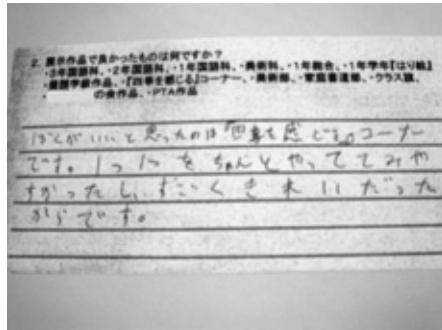 2. 展示作品で良かったものは何ですか?
・3年国語科、・2年国語科、・1年国語科、・美術科、・1年総合、・1年学年『はり絵』
作品、・『四季を感じる』コーナー、・美術部、・家庭書道部、・クラス旗、
の会作品、・PTA作品
ぼくがいいと思ったのは『四季を感じる』コーナー
です。1つ1つをちゃんとやっててみや
すかったし、すごくきれいだった
からです。